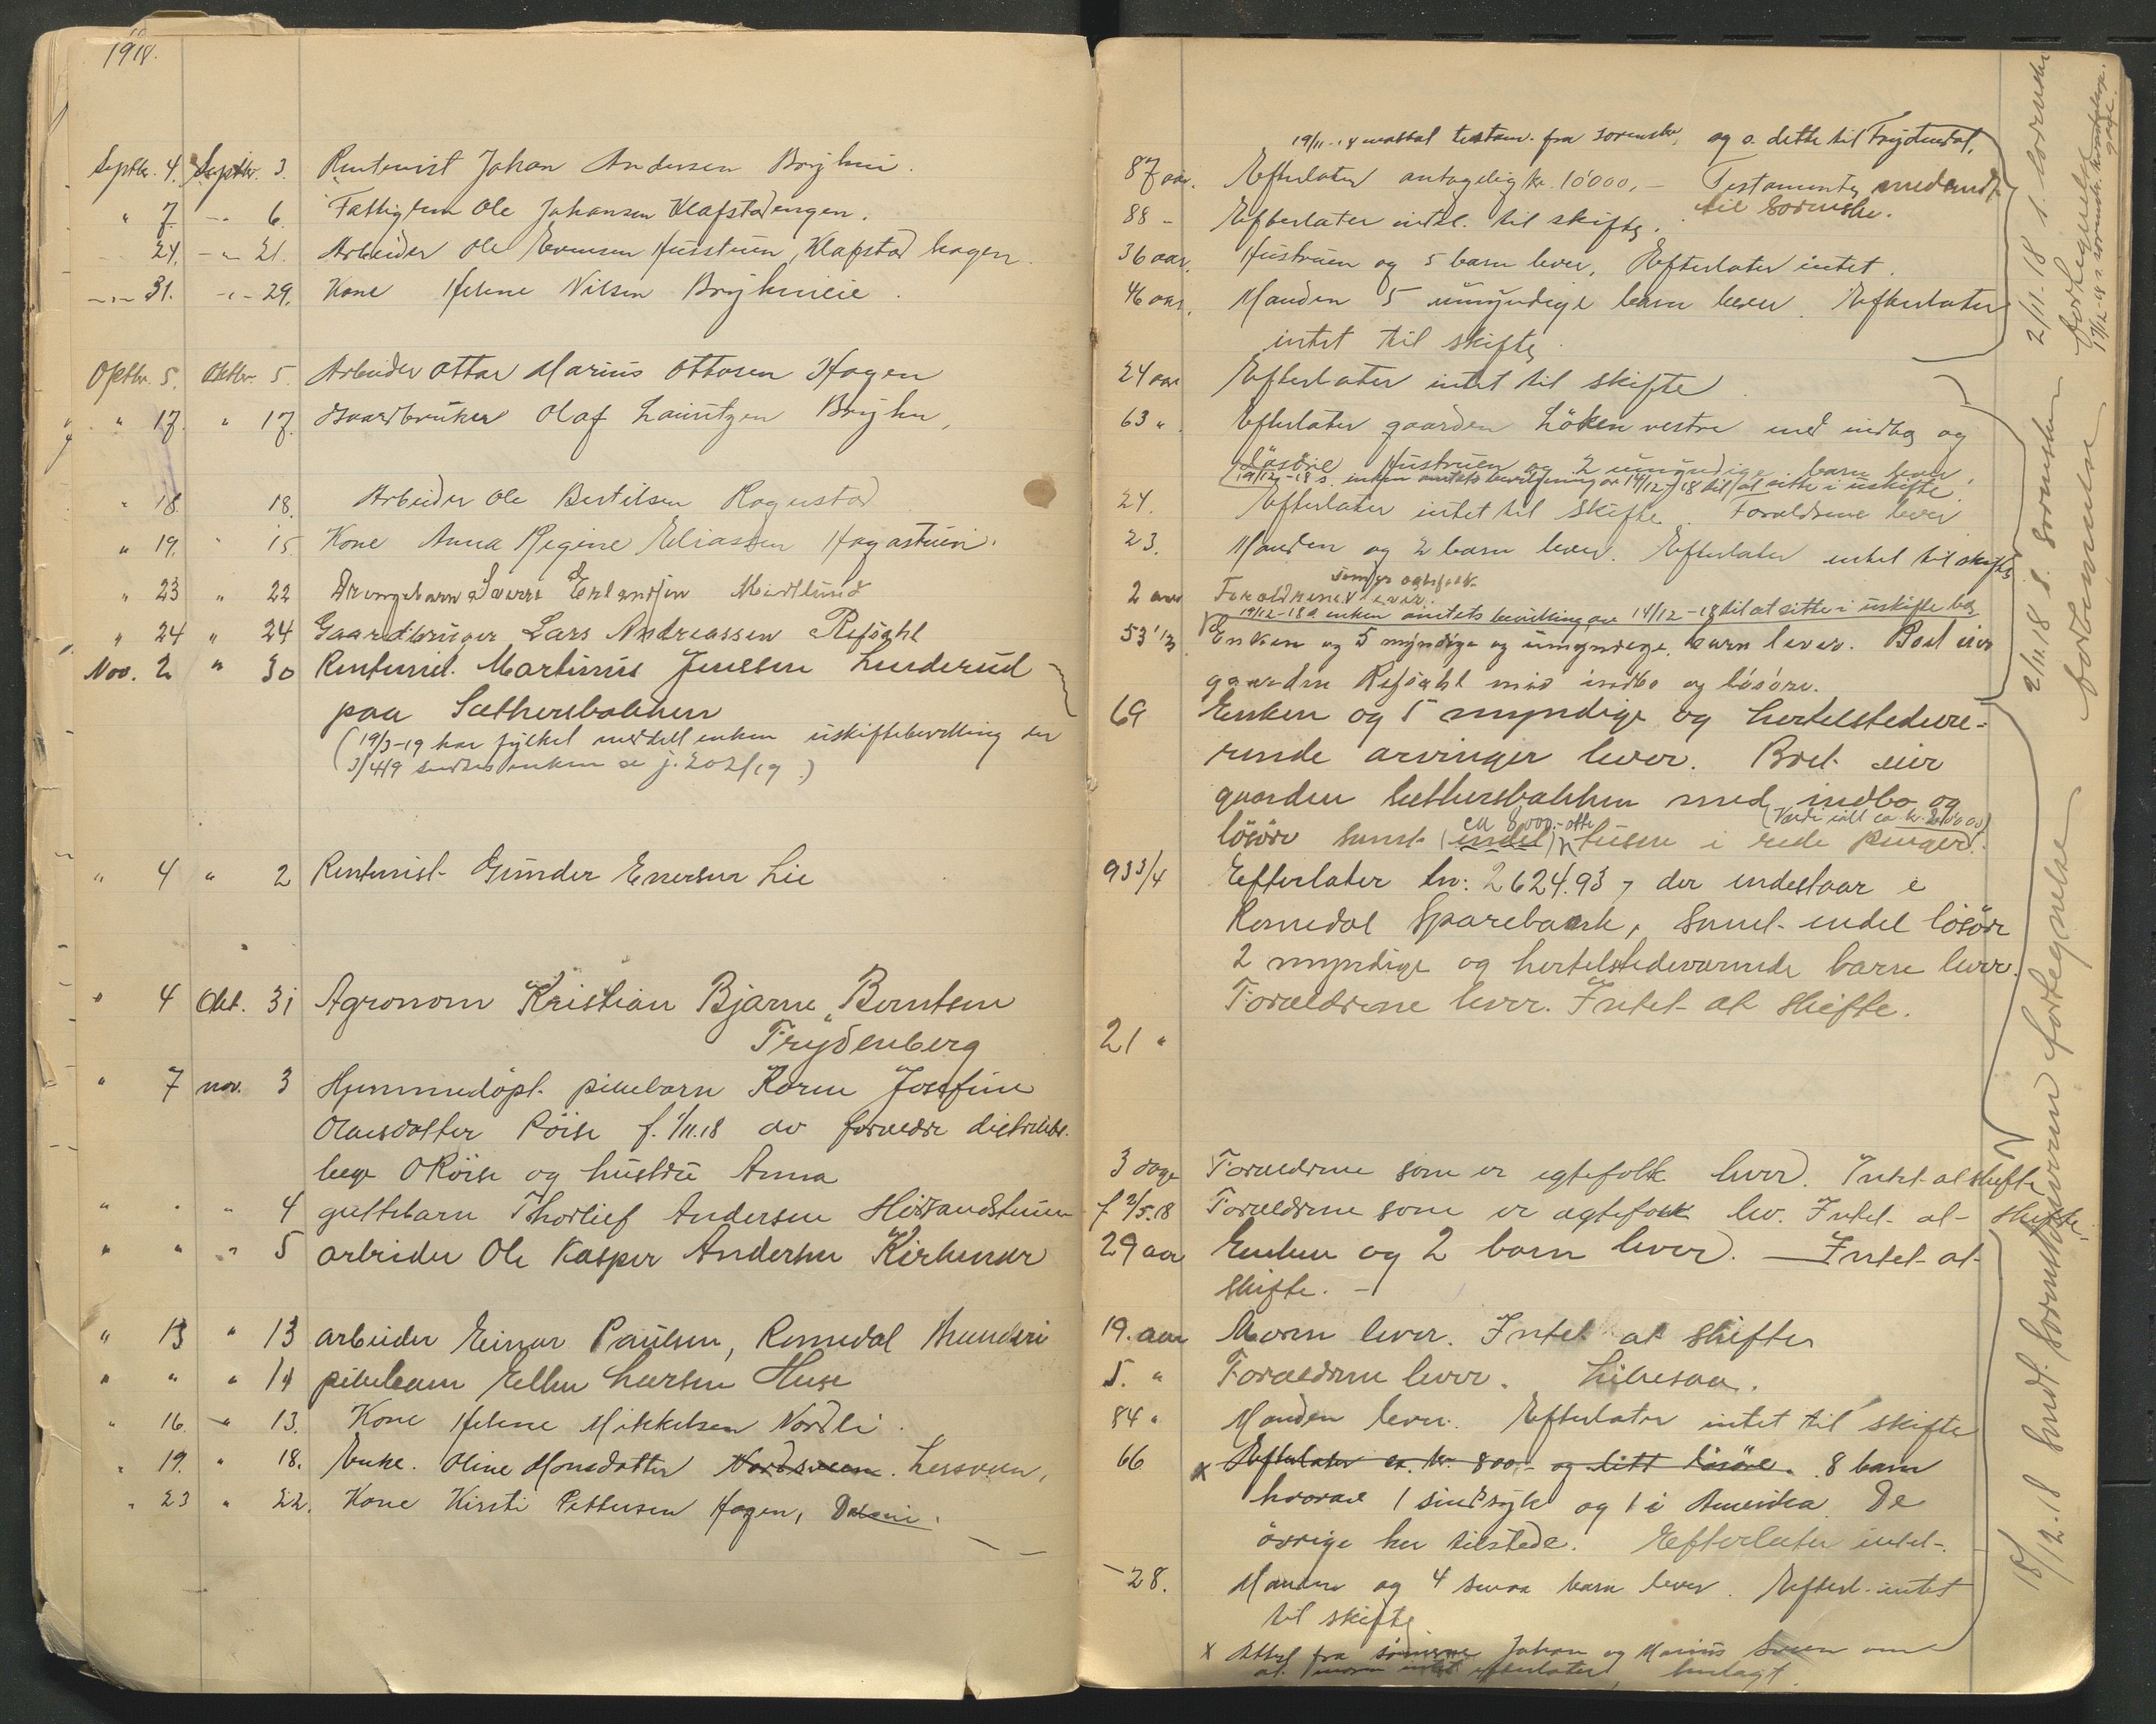 1918.
Septbr. 4. Septbr. 3. Rentenist Johan Andersen Bryhni.
" 7 -"- 6. Fattiglem Ole Johansen Klafstadengen.
24. -"- 21. Arbeider Ole Evensen Husstuen, Klafstad hagen.
-"- 31. -"- 29. Kone Helene Nilsen Bryhnieie.
Oktbr. 5. Oktbr. 5. Arbeider Ottar Marius Ottosen Hagen
" 17. " 17. Gaardbruker Olaf Lauritzen Bryhn,
" 18. 18. Arbeider Ole Bertilsen Rogustad
" 19. " 15. Kone Anna Regine Eliassen Hagastuen.
" 23 " 22 Drengebarn Sverre Erlandsen Midtlund
" 24 " 24 Gaardbruger Lars Andreassen Refsahl
Nov. 2 " 30 Rentenist. Martinus Jenssen Linderud
paa Sæthersbakken
(19/3-19 har fylket meddelt enken uskiftebevilling der
3/4 19 sendtes enken se j. 202/19.)
" 4 " 2 Rentenist Gunder Enersen Lie
" 4 Okt. 31 Agronom Kristian Bjarne Berntsen
Frydenberg
" 7 nov. 3 Hjemmedöpt pikebarn Karen Josefine
Olavsdatter Röise f. 1/11.18 av forældre distrikts-
læge O Röise og hustru Anna
" " " 4 guttebarn Thorlief Andersen Horsandstuen
" " " 5 arbeider Ole Kasper Andersen Kirkener
" 13 " 13 arbeider Einar Paulsen, Romedal Brænderi
" " " 14 pikebarn Ellen Larsen Huse
" 16. -"- 13. Kone Helene Mikkelsen Nordli.
" 19. " 18. Enke. Oline Monsdatter Nordsveen. Lersveen,
" 23 " 22. Kone Kirsti Pettersen Hagen, Daleni.
19/11-18 mottat testam. fra sorenskr. og s. dette til Frydendal.
87 aar. Efterlater antagelig kr. 10'000,- Testamente medsendt
til Sorenskr.
88 - Efterlater intet til skifte.
36 aar. Hustruen og 5 barn lever. Efterlater intet.
46 aar. Manden 5 umyndige barn lever. Efterlater
intet til skifte.
24 aar Efterlater intet til skifte.
63 " Efterlater gaarden Löken vestre med indbo og
Lösöre Hustruen og 2 umyndige barn lever.
(19/12-18 s. enken amtets bevilgning av 14/12-18 til at sitte i uskifte.
24. Efterlater intet til skifte. Forældrene lever
23. Manden og 2 barn lever. Efterlater intet til skifte
som er egtefolk
2 aar Forældrene lever.
19/12-18 s. enken amtets bevilling av 14/12-18 til at sitte i uskifte bo
53 1/2 Enken og 5 myndige og umyndige barn lever. Boet eier
gaarden Refsahl med indbo og lösöre.
69 Enken og 5 myndige og hertelstedvæ-
rende arvinger lever. Boet eier
gaarden Sæthersbakken med indbo og
(Værdi ialt ca. kr. 20'000)
ca 8,000.- otte
lösöre samt (endel) tusen i rede penger.
93 3/4 Efterlater kr. 2624.93, der indestaar i
Romedal Sparebank, samt endel lösöre
2 myndige og hertelstedværende barn lever.
Forældrene lever. Intet at skifte.
21 "
3 dage Forældrene som er egtefolk lever. Intet at skifte
f 2/5.18 Forældrene som er egtefolk lev. Intet at skifte.
29 aar Enken og 2 barn lever. — Intet at
skifte. -
19. aar Moren lever. Intet at skifte
5. " Forældrene lever. Likesaa.
84 " Manden lever. Efterlater intet til skifte
66 x Efterlater ca. kr. 800,- og litt lösöre. 8 barn
hvorav 1 sindsyk og 1 i Amerika De
övrige her tilstede. Efterlater intet.
28. Manden og 4 smaa barn lever. Efterl. intet
til skifte
x Attest fra sönnerne Johan og Marius Sveen om
at moren intet efterlater, henlagt.
2/11-18 s. sorenskr. fortegnelse
17/12-18 s. sorenskr. kvartalsopgave.
2/11.18 s. Sorenskr fortegnelse
18/12.18 Sendt Sorenskriveren fortegnelse